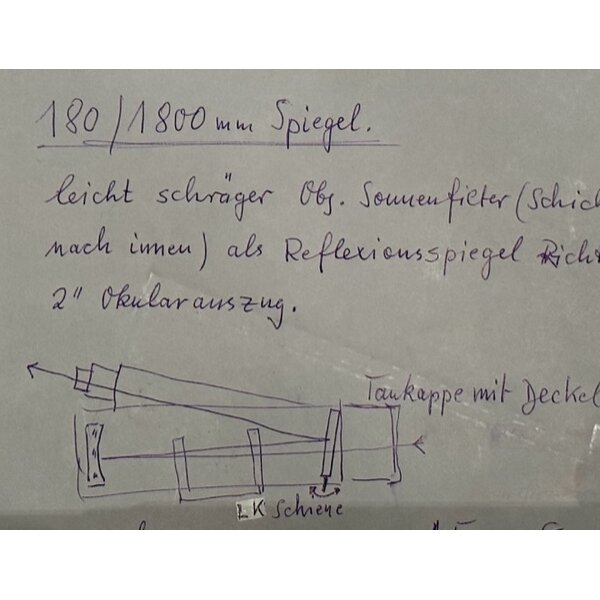 180/1800mm Spiegel.
leicht schräger Obj. Sonnenfilter (Schich
nach innen) als Reflexionsspiegel Rich
2" Okularauszug.
Taukappe mit Deckel
LK Schiene